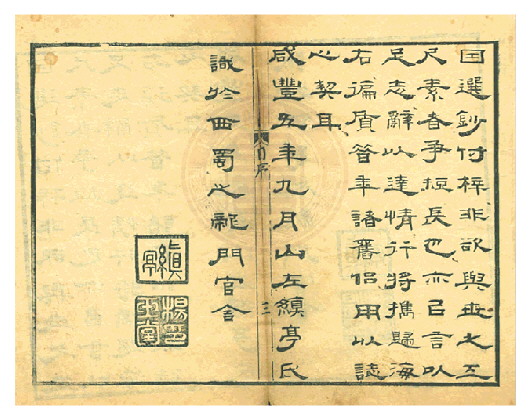 囙選鈔付梓非欲與世之工
尺素者爭短長也亦曰言以
足志辭以達情行將攜歸海
右徧質昔年諸舊侶用以誌
心契耳
咸豐五年九月山左縝亭氏
自序
三
識於西蜀之龍門官舍
縝亭
楊印